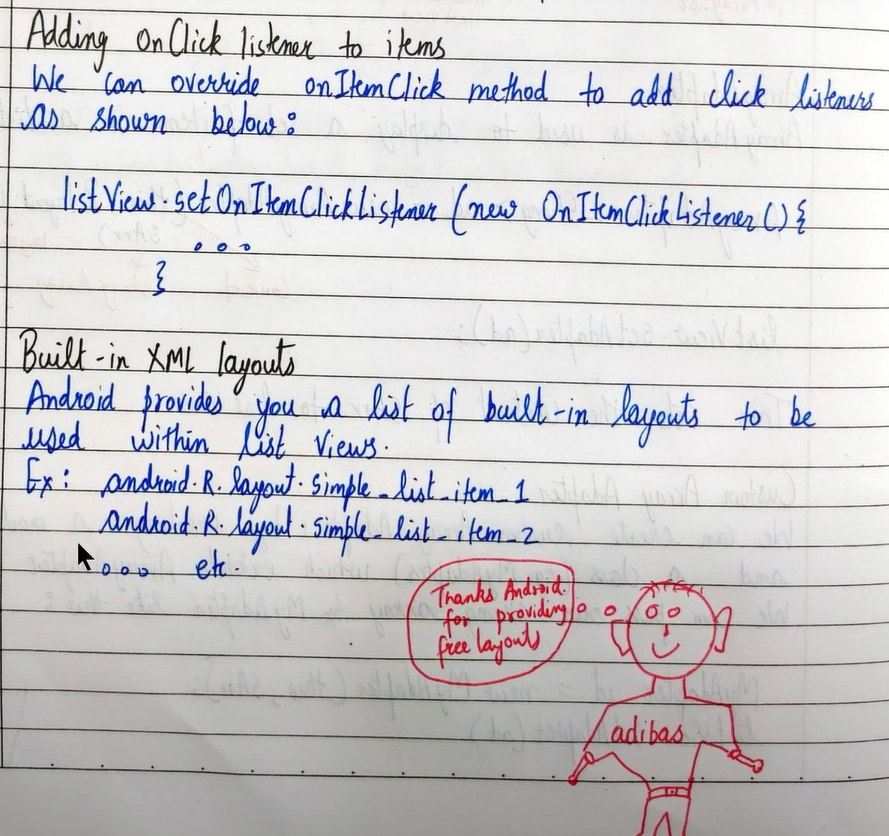 Adding OnClick listener to items
We can override onItemClick method to add click listeners
as shown below:
listView.setOnItemClickListener (new OnItemClickListener () {
...
}
Built-in XML layouts
Android provides you a list of built-in layouts to be
used within list views.
Ex: android.R.layout.simple_list_item_1
android.R.layout.simple_list_item_2
... etc.
Thanks Android
for providing
free layouts
adibas